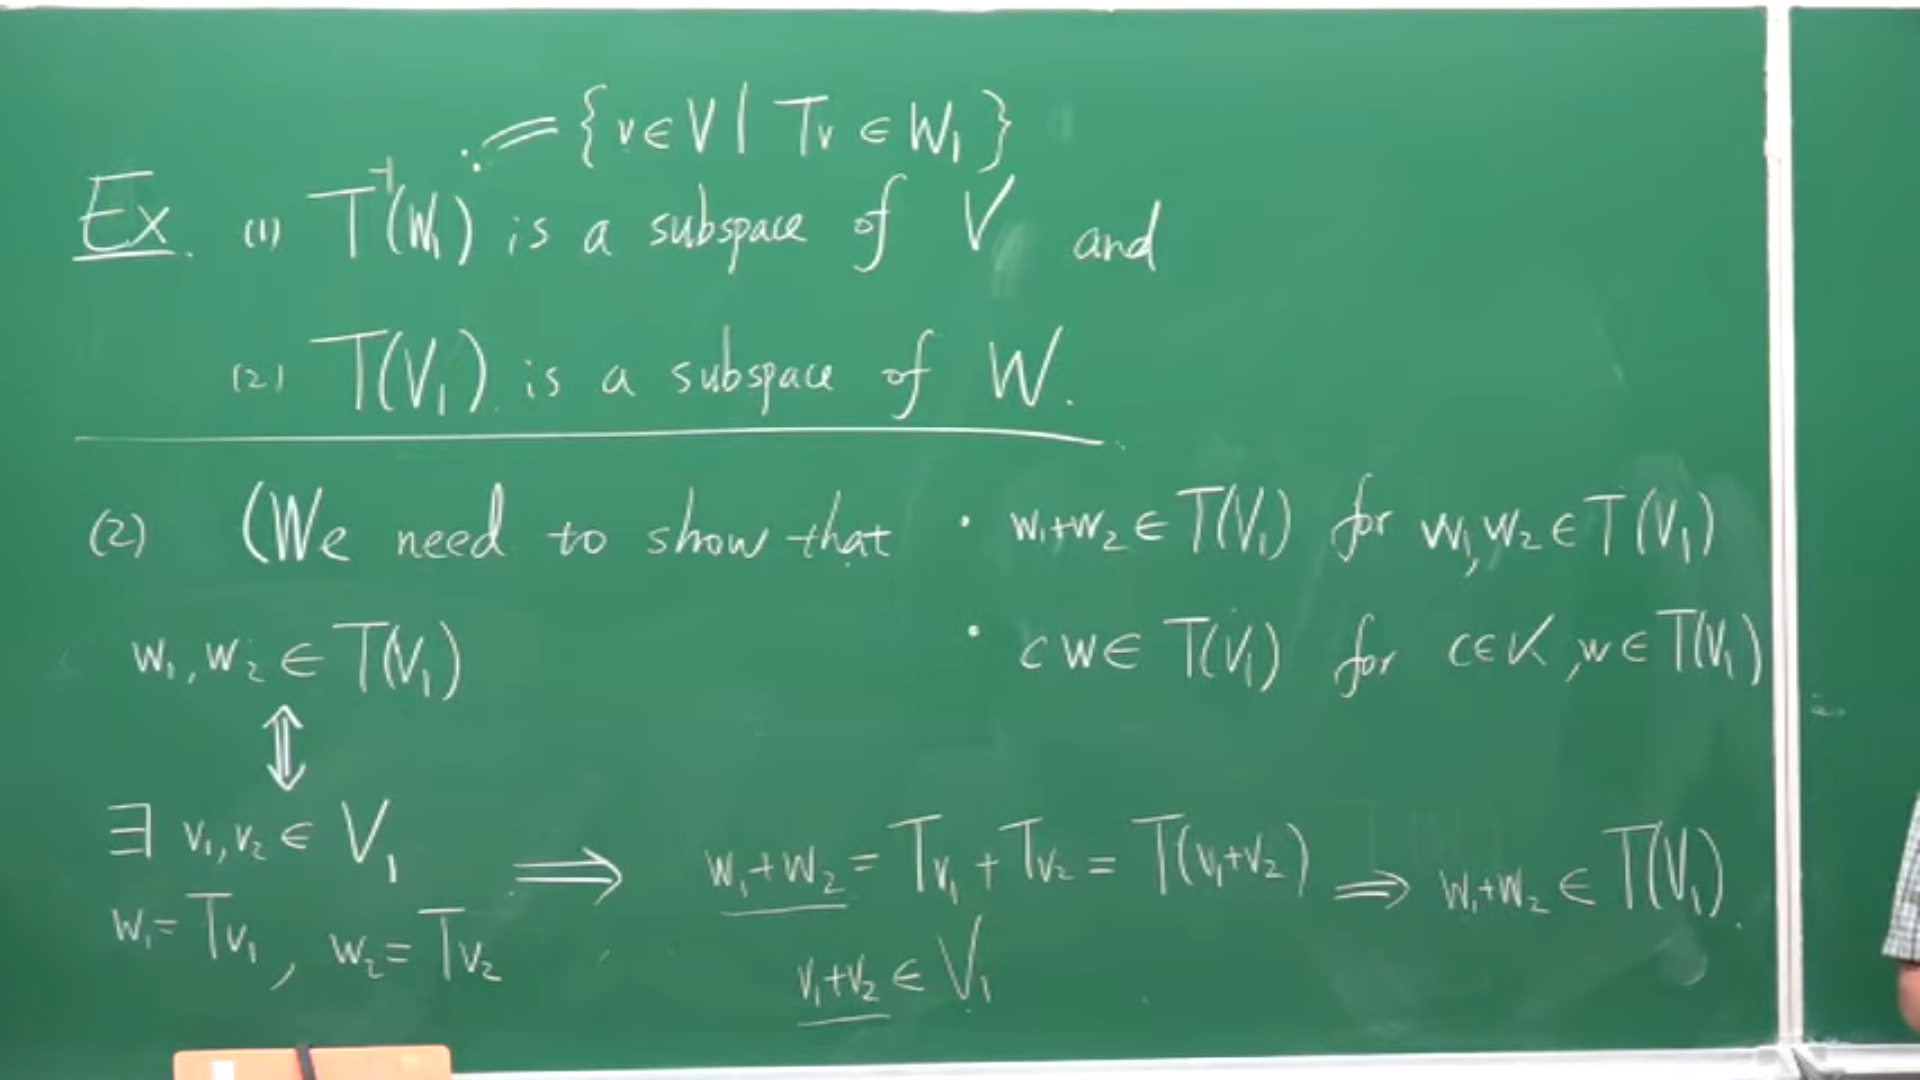 := {v∈V | Tv ∈ W₁}
Ex. (1) T⁻¹(W₁) is a subspace of V and
(2) T(V₁) is a subspace of W.
(2) (We need to show that · w₁+w₂ ∈ T(V₁) for w₁, w₂ ∈ T(V₁)
· cw ∈ T(V₁) for c∈K, w ∈ T(V₁)
w₁, w₂ ∈ T(V₁)
⇕
∃ v₁, v₂ ∈ V₁
w₁ = Tv₁, w₂ = Tv₂
⟹ w₁+w₂ = Tv₁ + Tv₂ = T(v₁+v₂) ⟹ w₁+w₂ ∈ T(V₁).
v₁+v₂ ∈ V₁